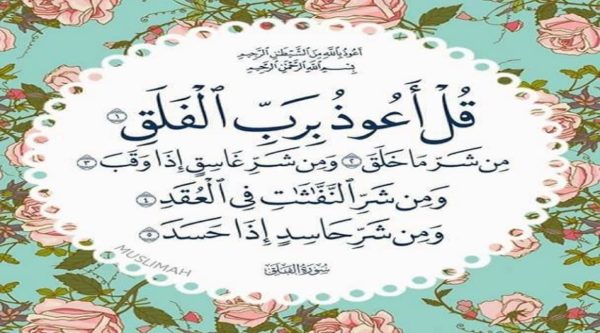 أَعُوذُ بِاللَّهِ مِنَ الشَّيْطَٰنِ الرَّجِيمِ
بِسْمِ ٱللَّهِ ٱلرَّحْمَٰنِ ٱلرَّحِيمِ
قُلْ أَعُوذُ بِرَبِّ ٱلْفَلَقِ ١
مِن شَرِّ مَا خَلَقَ ٢ وَمِن شَرِّ غَاسِقٍ إِذَا وَقَبَ ٣
وَمِن شَرِّ ٱلنَّفَّٰثَٰتِ فِى ٱلْعُقَدِ ٤
وَمِن شَرِّ حَاسِدٍ إِذَا حَسَدَ ٥
MUSLIMAH
سُورَةُ الفَلَق